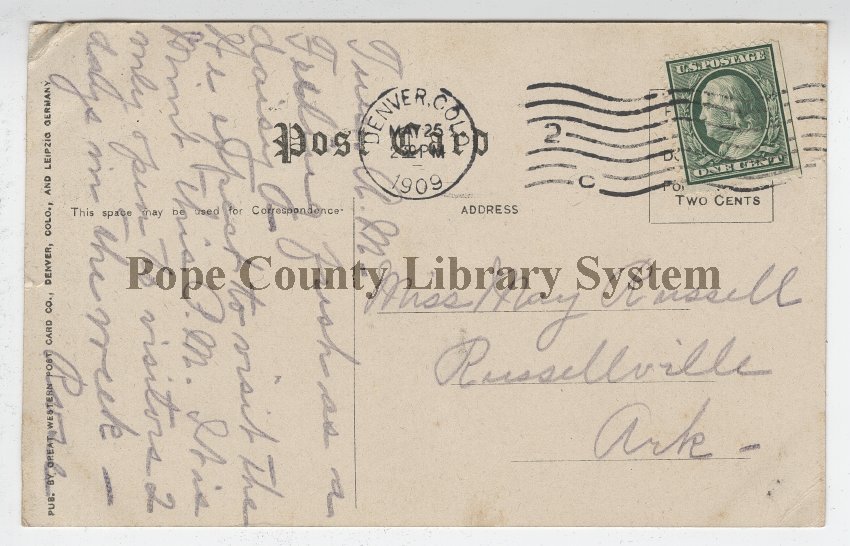 Post Card
DENVER, COLO.
MAY 25
1909
2
C
U.S. POSTAGE
ONE CENT
TWO CENTS
This space may be used for Correspondence
ADDRESS
Pope County Library System
Miss May Russell
Russellville
Ark -
A.M.
Feeling fresh as a
daisy
expect to visit the
Mint this P.M. It is
only open to visitors 2
days in the week -
PUB. BY GREAT WESTERN POST CARD CO., DENVER, COLO., AND LEIPZIG GERMANY